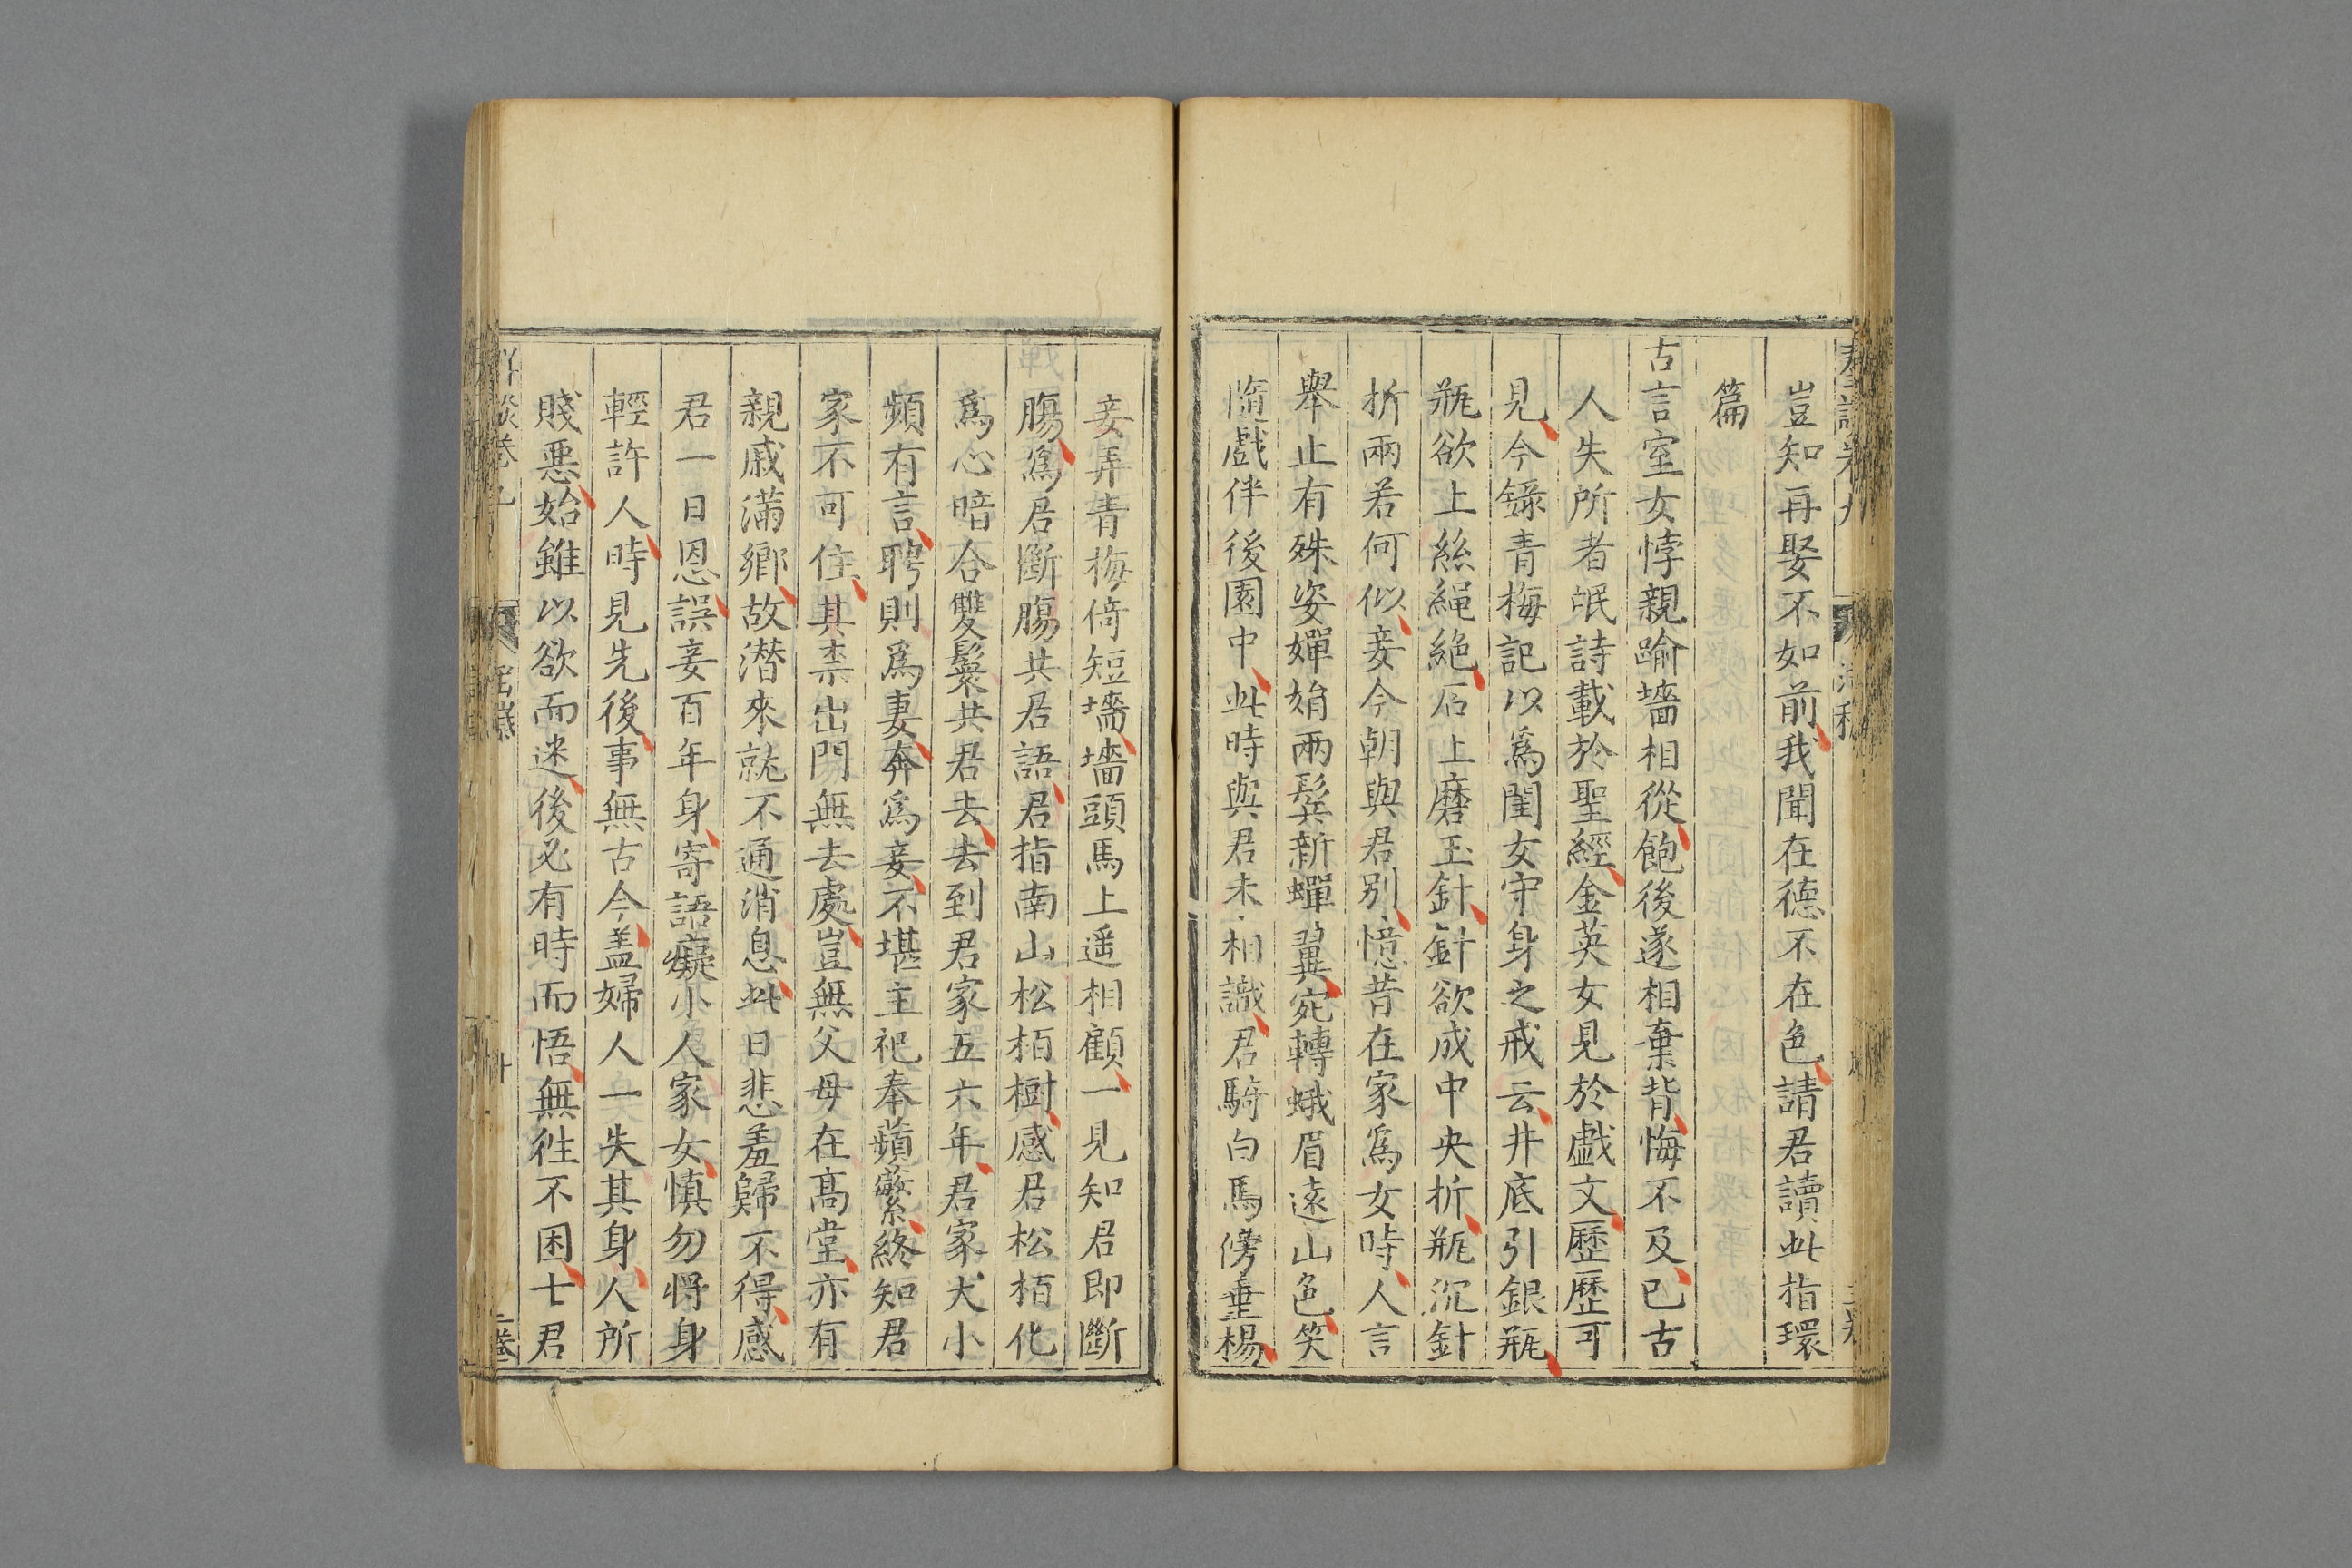 豈知再娶不如前我聞在德不在色請君讀此指環
篇
古言室女悖親踰墻相從飽後遂相棄背悔不及已古
人失所者氓詩載於聖經金英女見於戯文歷歷可
見今録青梅記以爲閨女守身之戒云井底引銀瓶
瓶欲上絲繩絶石上磨玉針針欲成中央折瓶沉針
折兩若何似妾今朝與君别憶昔在家爲女時人言
舉止有殊姿嬋娟兩鬂新蟬翼宛轉蛾眉遠山色笑
隨戲伴後園中此時與君未相識君騎白馬傍垂楊
妾弄青梅倚短墻墻頭馬上遥相顧一見知君即斷
腸爲君斷腸共君語君指南山松栢樹感君松栢化
爲心暗合雙鬟共君去去到君家五六年君家大小
頻有言聘則爲妻奔爲妾不堪主祀奉蘋蘩終知君
家不可住其柰出門無去處豈無父母在高堂亦有
親戚滿鄉故潜來就不通消息此日悲羞歸不得感
君一日恩誤妾百年身寄語癡小人家女慎勿將身
輕許人時見先後事無古今盖婦人一失其身人所
賤惡始雖以欲而迷後必有時而悟無徃不困士君